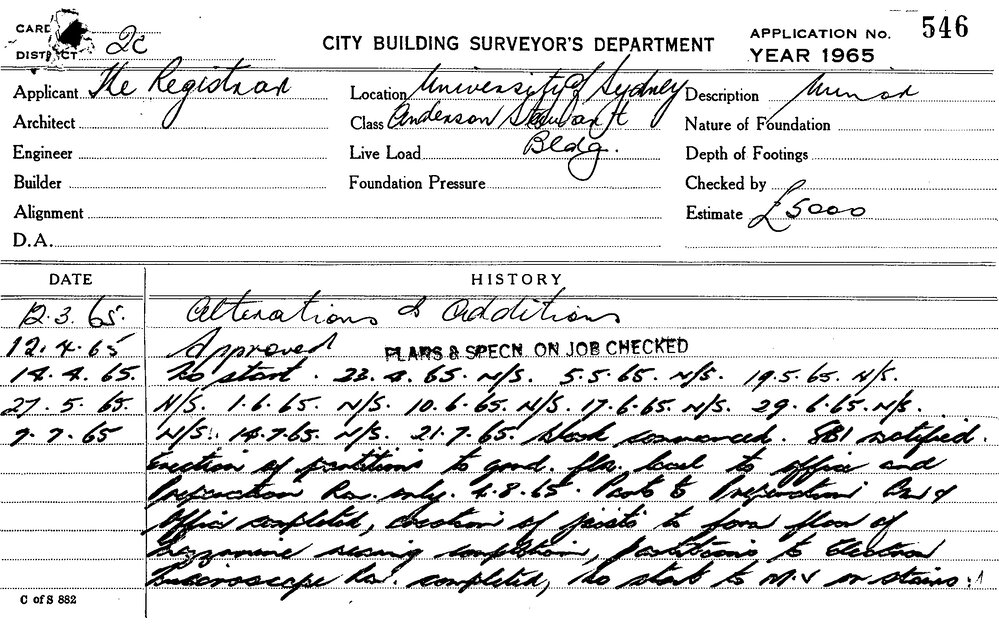 CARD
546
DISTRICT 2c
CITY BUILDING SURVEYOR'S DEPARTMENT
APPLICATION No.
YEAR 1965
Applicant The Registrar
Location University of Sydney
Description Minor
Architect
Class Anderson Stewart
Nature of Foundation
Engineer
Live Load Bldg.
Depth of Footings
Builder
Foundation Pressure
Checked by
Alignment
Estimate £5000
D.A.
DATE HISTORY
12.3.65. Alterations & Additions
12.4.65 Approved PLANS & SPECN. ON JOB CHECKED
14.4.65. No start. 23.4.65. N/S. 5.5.65. N/S. 19.5.65. N/S.
27.5.65. N/S. 1.6.65. N/S. 10.6.65. N/S. 17.6.65. N/S. 29.6.65. N/S.
7.7.65 N/S. 14.7.65. N/S. 21.7.65. Work commenced. SBI notified.
Erection of partitions to grnd. flr. level to office and
Preparation Rm. only. 4.8.65. Parts to Preparation Rm &
Office completed, erection of joists to form floor of
Mezzanine nearing completion, partitions to Electron
Microscope Rm. completed, No start to M.V or stairs.
C of S 882